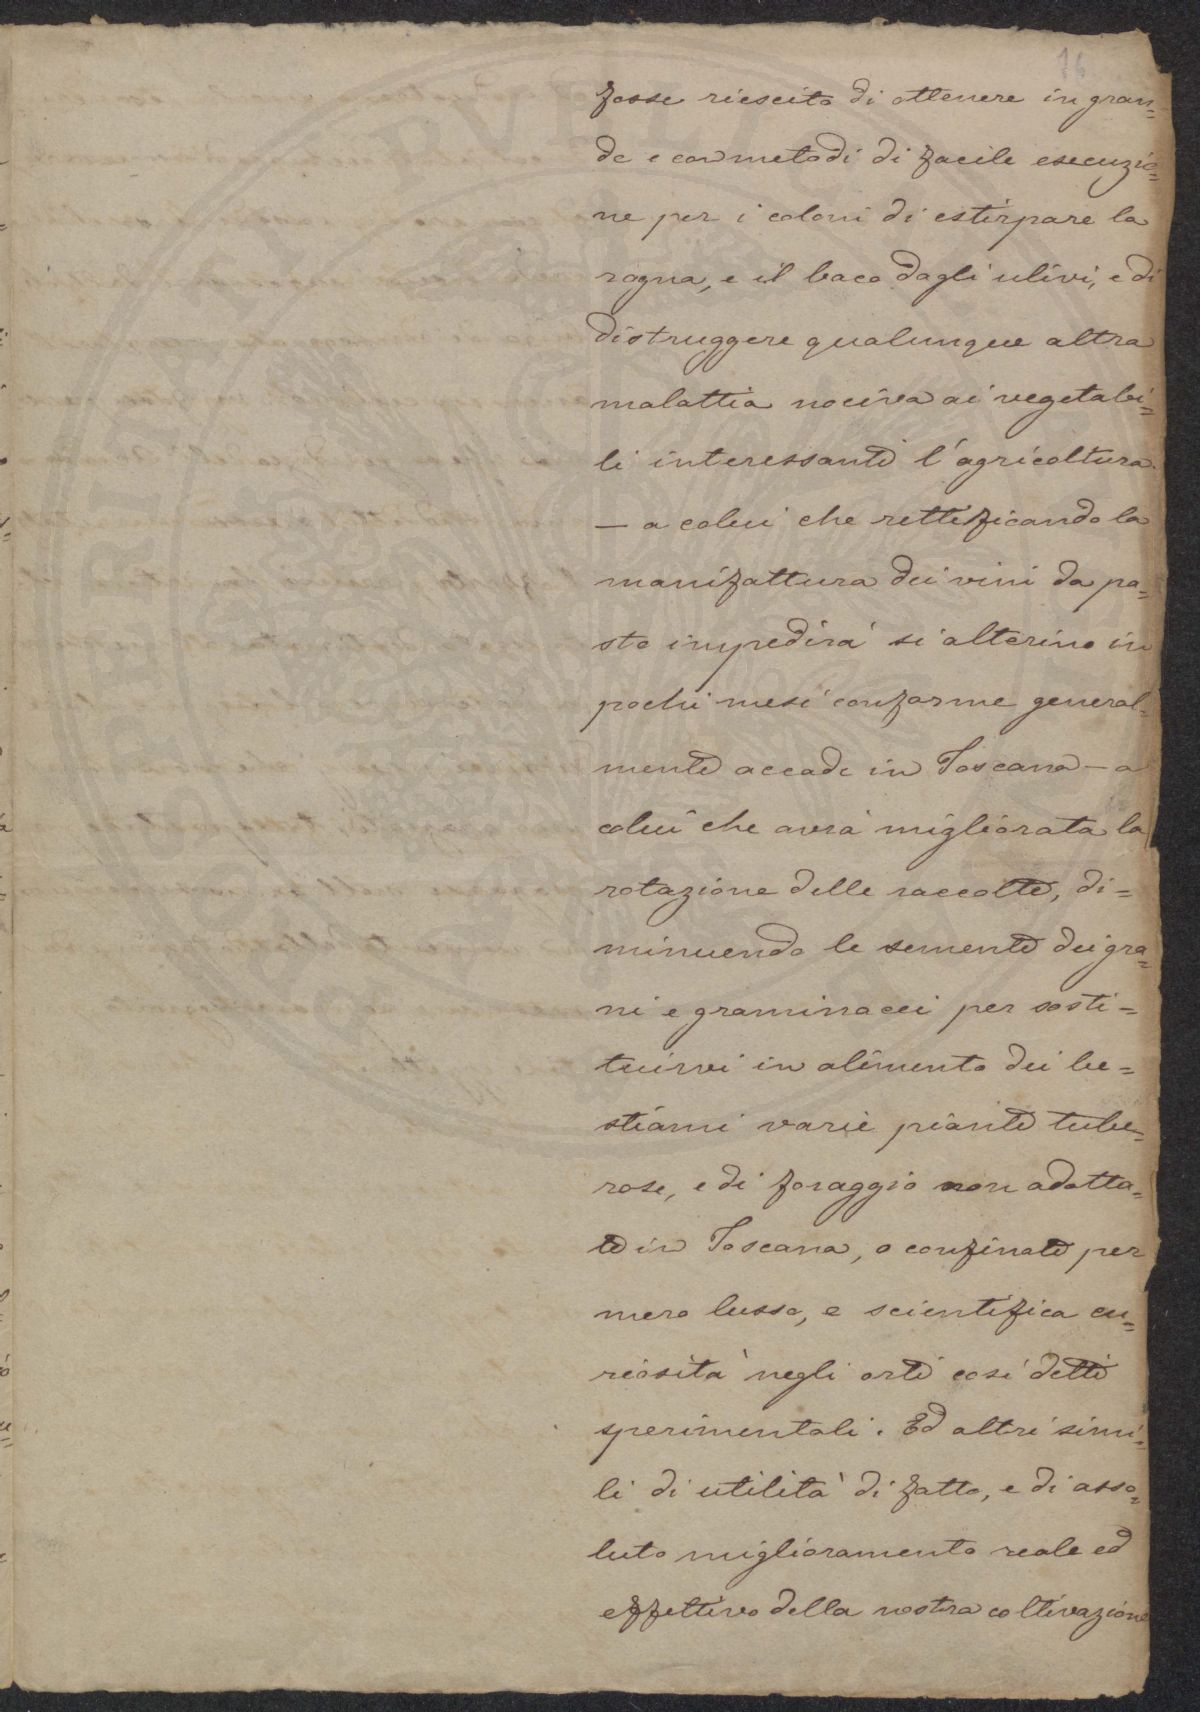 16
fosse riescito di ottenere in gran=
de e con metodi di facile esecuzio=
ne per i coloni di estirpare la
rogna, e il baco dagli ulivi, e di
distruggere qualunque altra
malattia nociva ai vegetabi=
li interessanti l'agricoltura
— a colui che rettificando la
manifattura dei vini da pa=
sto impedirà si alterino in
pochi mesi conforme general=
mente accade in Toscana — a
colui che avrà migliorata la
rotazione delle raccolte, di=
minuendo le sementi dei gra=
ni e graminacei per sosti=
tuirvi in alimento dei be=
stiami varie piante tube=
rose, e di foraggio non adotta=
te in Toscana, o confinate per
mero lusso, e scientifica cu=
riosità negli orti così detti
sperimentali. Ed altri simi=
li di utilità di fatto, e di asso=
luto miglioramento reale ed
effettivo della nostra coltivazione